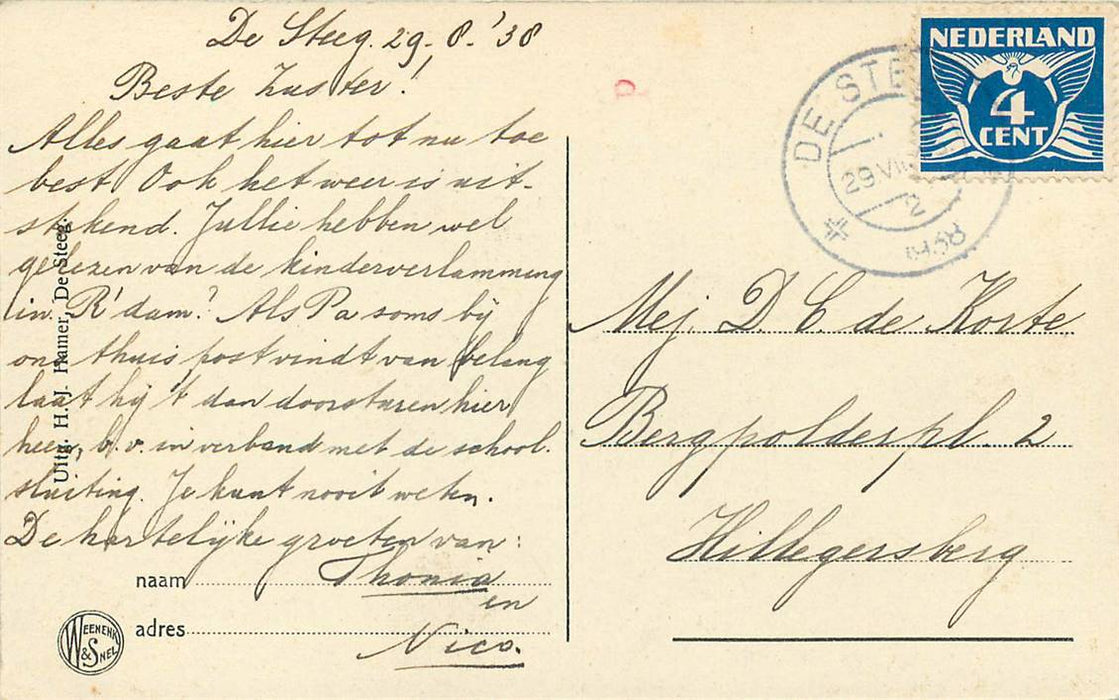 De Steeg. 29-8-'38
Beste Zuster!
Alles gaat hier tot nu toe
best. Ook het weer is uit-
stekend. Jullie hebben wel
gelezen van de kinderverlamming
in R'dam? Als Pa soms bij
ons thuis post vindt van belang
laat hij 't dan doorsturen hier
heen, b.v. in verband met de school-
sluiting. Je kunt nooit weten.
De hartelijke groeten van:
Thonia
en
Nico.
naam
adres
Uitg. H. J. Hamer, De Steeg.
WEENENK
& SNEL
NEDERLAND
4
CENT
DE STE
29 VIII
2
1938
Mej. D. C. de Korte
Bergpolderpl. 2
Hillegersberg